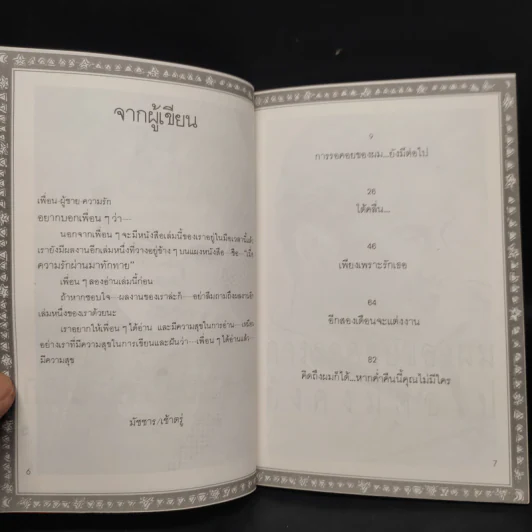 จากผู้เขียน
เพื่อน ผู้ชาย ความรัก
อยากบอกเพื่อน ๆ ว่า—
นอกจากเพื่อน ๆ จะมีหนังสือเล่มนี้ของเราอยู่ในมือเวลานี้แล้ว
เรายังมีผลงานอีกเล่มหนึ่งที่วางอยู่ข้าง ๆ บนแผงหนังสือ—ชื่อ—"เมื่อ
ความรักผ่านมาทักทาย"
เพื่อน ๆ ลองอ่านเล่มนี้ก่อน
ถ้าหากชอบใจ—ผลงานของเราล่ะก็—อย่าลืมถามถึงผลงาน
เล่มหนึ่งของเราด้วยนะ
เราอยากให้เพื่อน ๆ ได้อ่าน และมีความสุขในการอ่าน—
อย่างเราที่มีความสุขในการเขียนและฝันว่า—เพื่อน ๆ ได้อ่านแล้ว—
มีความสุข
มัชชาร/เช้าตรู่
6
9
การรอคอยของผม...ยังมีต่อไป
26
ใต้คลื่น...
46
เพียงเพราะรักเธอ
64
อีกสองเดือนจะแต่งงาน
82
คิดถึงผมก็ได้...หากค่ำคืนนี้คุณไม่มีใคร
7